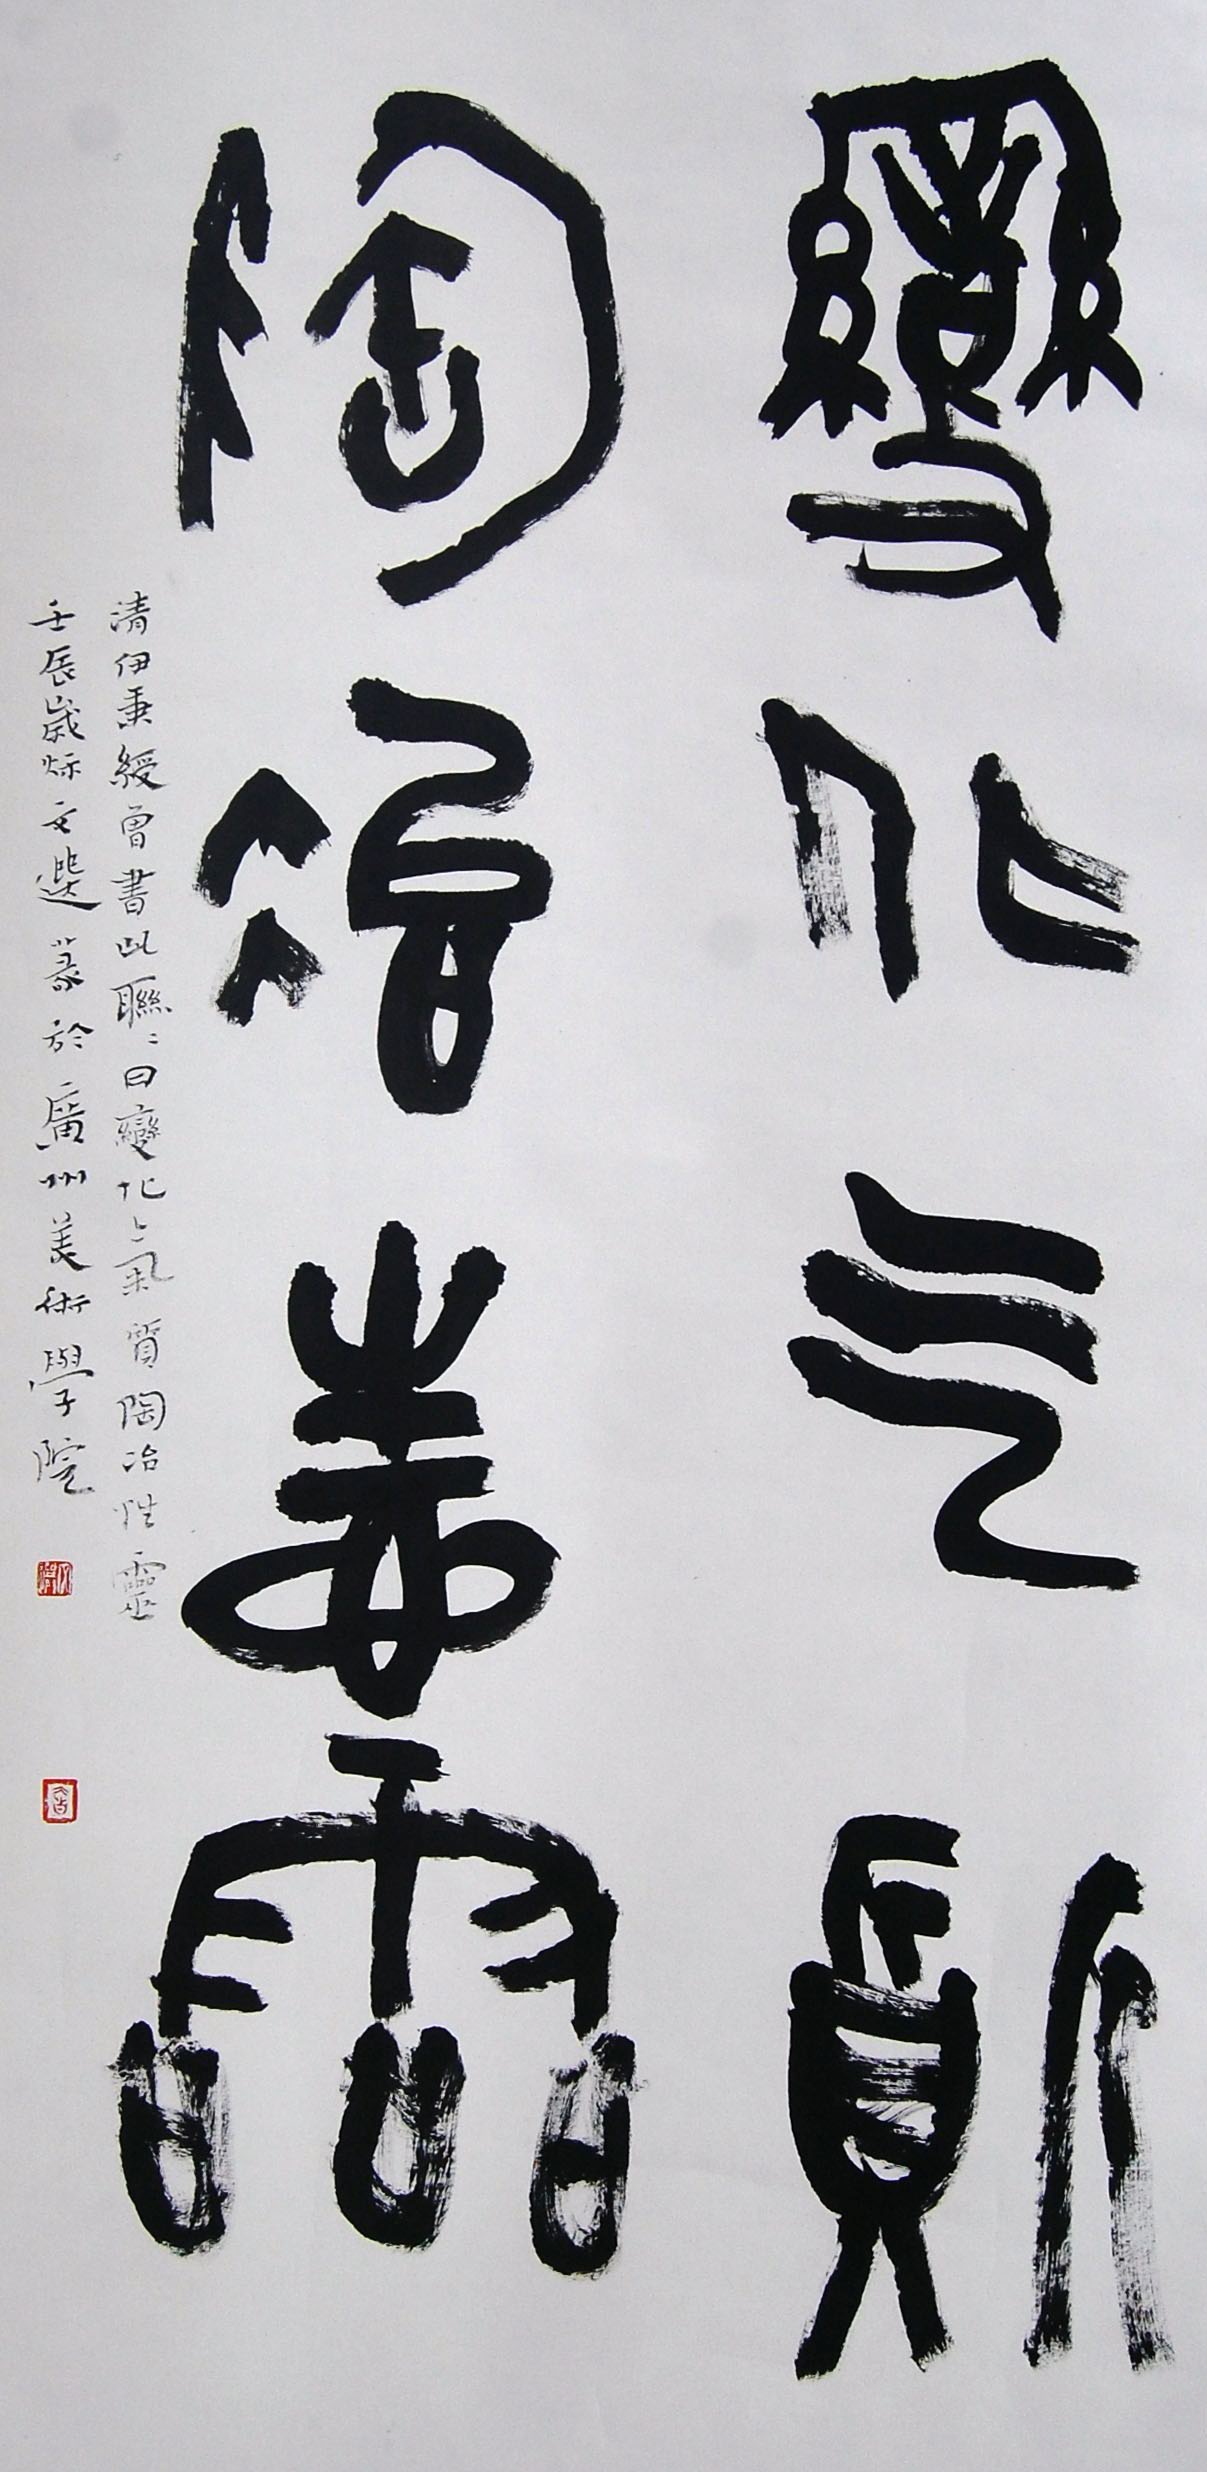 變化气質
陶冶性靈
清伊秉綬曾書此聯〻曰變化氣質陶冶性靈
壬辰歲烁文選篆於廣州美術學院